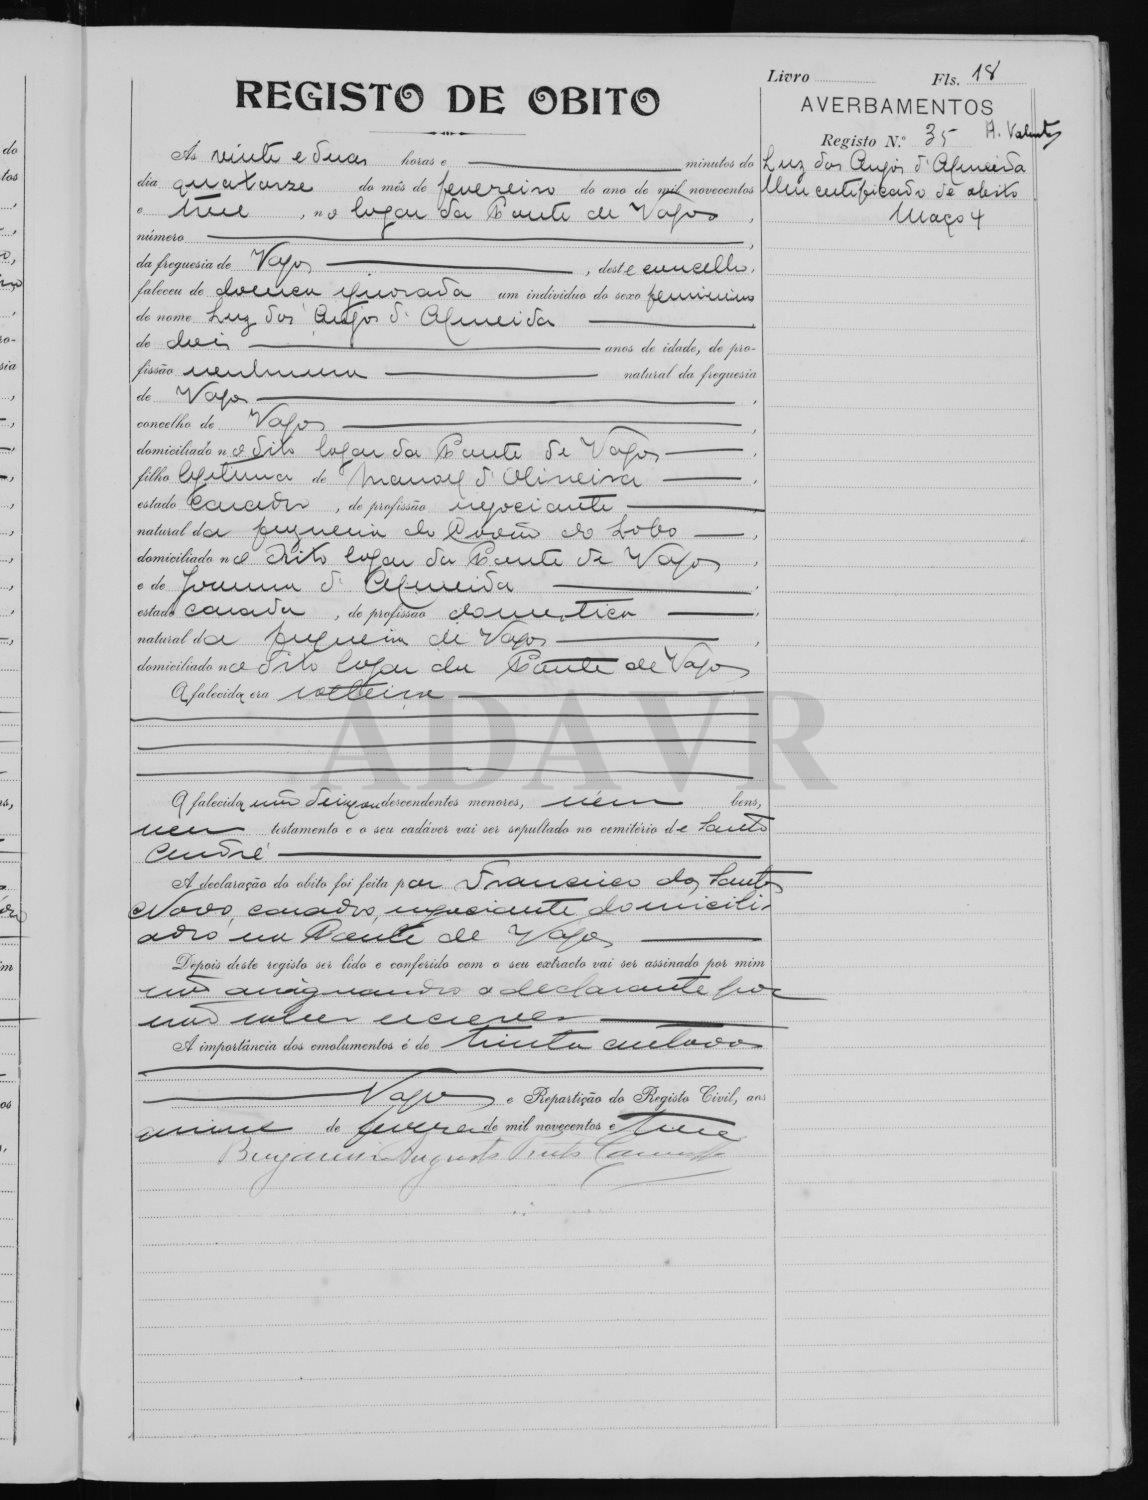 Livro Fls. 18
REGISTO DE OBITO
AVERBAMENTOS
Registo N.º 35 A. Valente
Luz dos Anjos d'Almeida
Um certificado de obito
Maço 4
Ás vinte e duas horas e minutos do
dia quatorze do mês de fevereiro do ano de mil novecentos
e treze, no logar da Ponte de Vagos,
número ,
da freguesia de Vagos , deste concelho,
faleceu de doença ignorada um individuo do sexo feminino
de nome Luz dos Anjos d'Almeida
de dois anos de idade, de pro-
fissão nenhuma natural da freguesia
de Vagos ,
concelho de Vagos ,
domiciliado no dito logar da Ponte de Vagos ,
filho legitima de Manoel d'Oliveira ,
estado casado, de profissão negociante ,
natural da freguesia do Covão do Lobo ,
domiciliado no dito logar da Ponte de Vagos ,
e de Joanna d'Almeida ,
estado casada, de profissão domestica ,
natural da freguesia de Vagos ,
domiciliado no dito logar da Ponte de Vagos
A falecida era solteira
A falecida não deixou descendentes menores, nem bens,
nem testamento e o seu cadáver vai ser sepultado no cemitério de Santo
André
A declaração do obito foi feita por Francisco dos Santos
Novo, casado, negociante domicili-
ado na Ponte de Vagos
Depois deste registo ser lido e conferido com o seu extracto vai ser assinado por mim
não assignando o declarante por
não saber escrever
A importância dos emolumentos é de trinta centavos
Vagos e Repartição do Registo Civil, aos
quinze de fevereiro de mil novecentos e treze
Benjamim Augusto
ADAVR